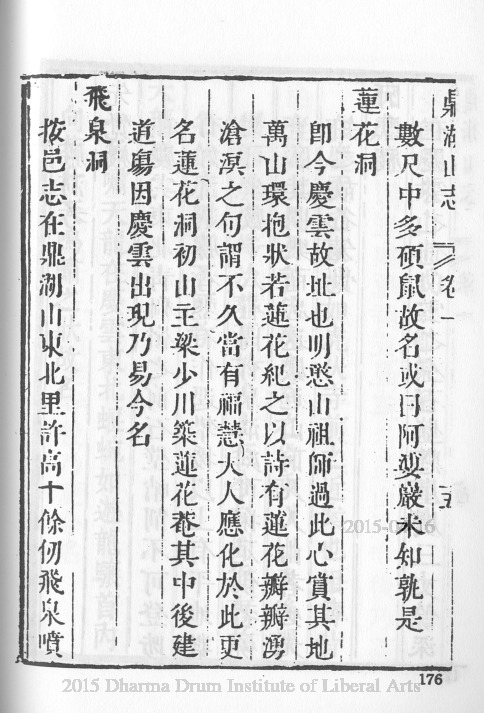 鼎湖山志 卷一 五
數尺中多碩鼠故名或曰阿婆巖未知孰是
蓮花洞
即今慶雲故址也明憨山祖師過此心賞其地
萬山環抱狀若蓮花紀之以詩有蓮花瓣瓣湧
滄溟之句謂不久當有福慧大人應化於此更
名蓮花洞初山主梁少川築蓮花菴其中後建
道場因慶雲出現乃易今名
飛泉洞
按邑志在鼎湖山東北里許高十餘仞飛泉噴
176
2015 Dharma Drum Institute of Liberal Arts